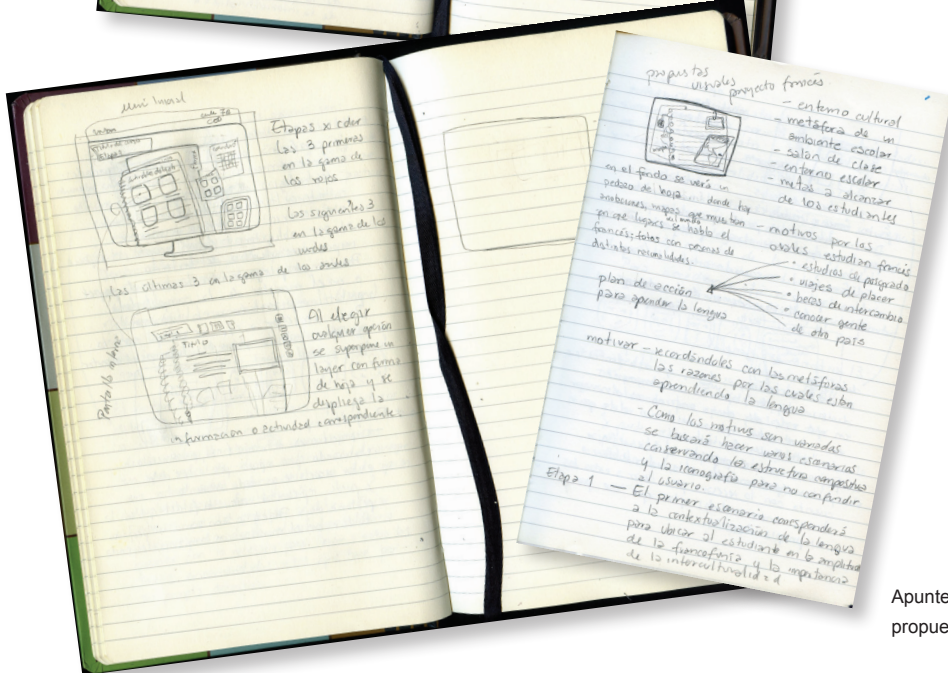 Menú lineal
Etapas x color
Las 3 primeras
en la gama de
los rojos
Los siguientes 3
en la gama de los
verdes
las últimas 3 en la gama de los
Pantalla tipo
Título
Al elegir
cualquier opción
se superpone un
layer con forma
de hoja y se
despliega la
información o actividad correspondiente.
propuestas
visuales proyecto francés
- entorno cultural
- metáfora de un
ambiente escolar
- salón de clase
- entorno escolar
- metas a alcanzar
de los estudiantes
en el fondo se verá un
pedazo de hoja, donde hay
anotaciones, mapas que muestran
en qué lugares se habla el
francés; fotos con personas de
distintas nacionalidades.
- motivos por los
cuales estudian francés
• estudios de posgrado
• viajes de placer
• becas de intercambio
• conocer gente
de otro país
plan de acción
para aprender la lengua
motivar - recordándoles con las metáforas
las razones por las cuales están
aprendiendo la lengua
- Como los motivos son variados
se buscará hacer varios escenarios
conservando la estructura compositiva
y la iconografía para no confundir
al usuario.
Etapa 1 — El primer escenario corresponderá
a la contextualización de la lengua
para ubicar al estudiante en la amplitud
de la francofonía y la importancia
de la interculturalidad
Apunte
propue